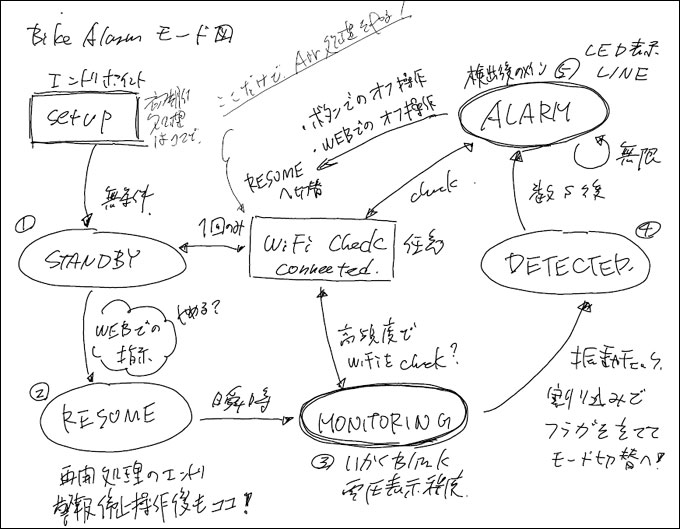 Bike Alarm モード図
エンドポイント
setup
初期化
処理
はココで。
ここだけで、 処理をやる!
・ボタンでのオフ操作
・WEBでのオフ操作
RESUME
へ切替
検出後のメイン ⑤
LED表示
LINE
ALARM
無限
無条件
check
数S後
①
STANDBY
1回のみ
WiFi Check
connected.
任意
④
DETECTED.
WEBでの
指示
やめる?
高頻度で
WiFiをcheck?
②
RESUME
瞬時
MONITORING
振動たら、
割り込みで
フラグを立てて
モード切替へ!
③ いかくBlink
電圧表示程度.
再開処理のエンド
警報停止操作後もココ!